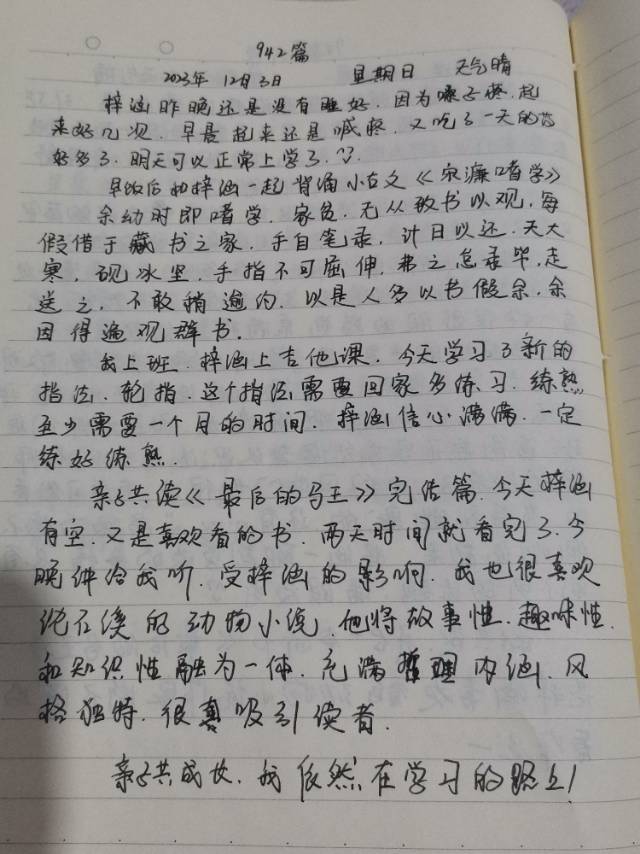 942篇
2023年 12月3日 星期日 天气晴
梓涵昨晚还是没有睡好,因为嗓子疼,起
来好几次,早晨起来还是喊疼,又吃了一天的药
好多了,明天可以正常上学了.
早饭后和梓涵一起背诵小古文《宋濂嗜学》
余幼时即嗜学,家贫,无从致书以观,每
假借于藏书之家,手自笔录,计日以还.天大
寒,砚冰坚,手指不可屈伸,弗之怠录毕,走
送之,不敢稍逾约.以是人多以书假余,余
因得遍观群书.
我上班,梓涵上吉他课,今天学习了新的
指法,轮指.这个指法需要回家多练习,练熟
至少需要一个月的时间,梓涵信心满满,一定
练好练熟.
亲子共读《最后的马王》完结篇.今天梓涵
有空,又是喜欢看的书,两天时间就看完了.今
晚讲给我听,受梓涵的影响,我也很喜欢
沈石溪的动物小说,他将故事性,趣味性,
和知识性融为一体,充满哲理内涵,风
格独特,很吸引读者.
亲子共成长,我依然在学习的路上!